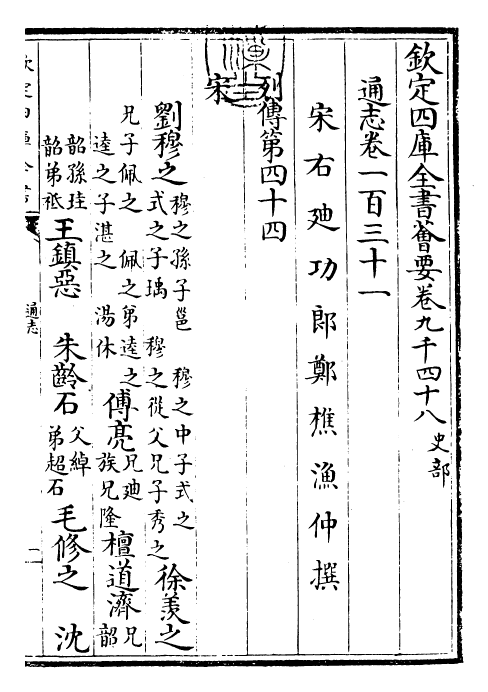 欽定四庫全書薈要卷九千四十八 史部
通志卷一百三十一
宋右廸功郎鄭樵漁仲撰
列傳第四十四
宋
劉穆之 穆之孫子邕 穆之中子式之 式之子瑀 穆之從父兄子秀之 徐羡之
兄子佩之 佩之弟逵之 逵之子湛之 湯休 傅亮 兄廸 族兄隆 檀道濟 兄韶
韶孫珪 韶弟祗 王鎮惡 朱齡石 父綽 弟超石 毛修之 沈
通志